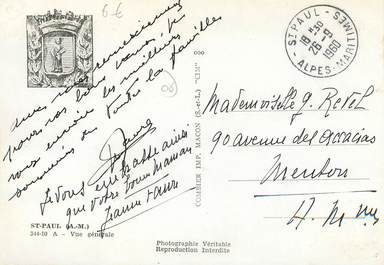 6 €
Avec nos remerciements
pour vos bons vœux, je
vous envoie les meilleurs
souvenirs de toute la famille
Je vous embrasse ainsi
que votre bonne maman
Jeanne
ST-PAUL (A.-M.)
344-10 A - Vue générale
Photographie Véritable
Reproduction Interdite
COMBIER IMP. MACON (S.-et-L.) "CIM"
ST-PAUL
18 H 30
26-9
1960
ALPES-MARITIMES
Mademoiselle G. Revel
90 avenue des Acacias
Menton
A. M.